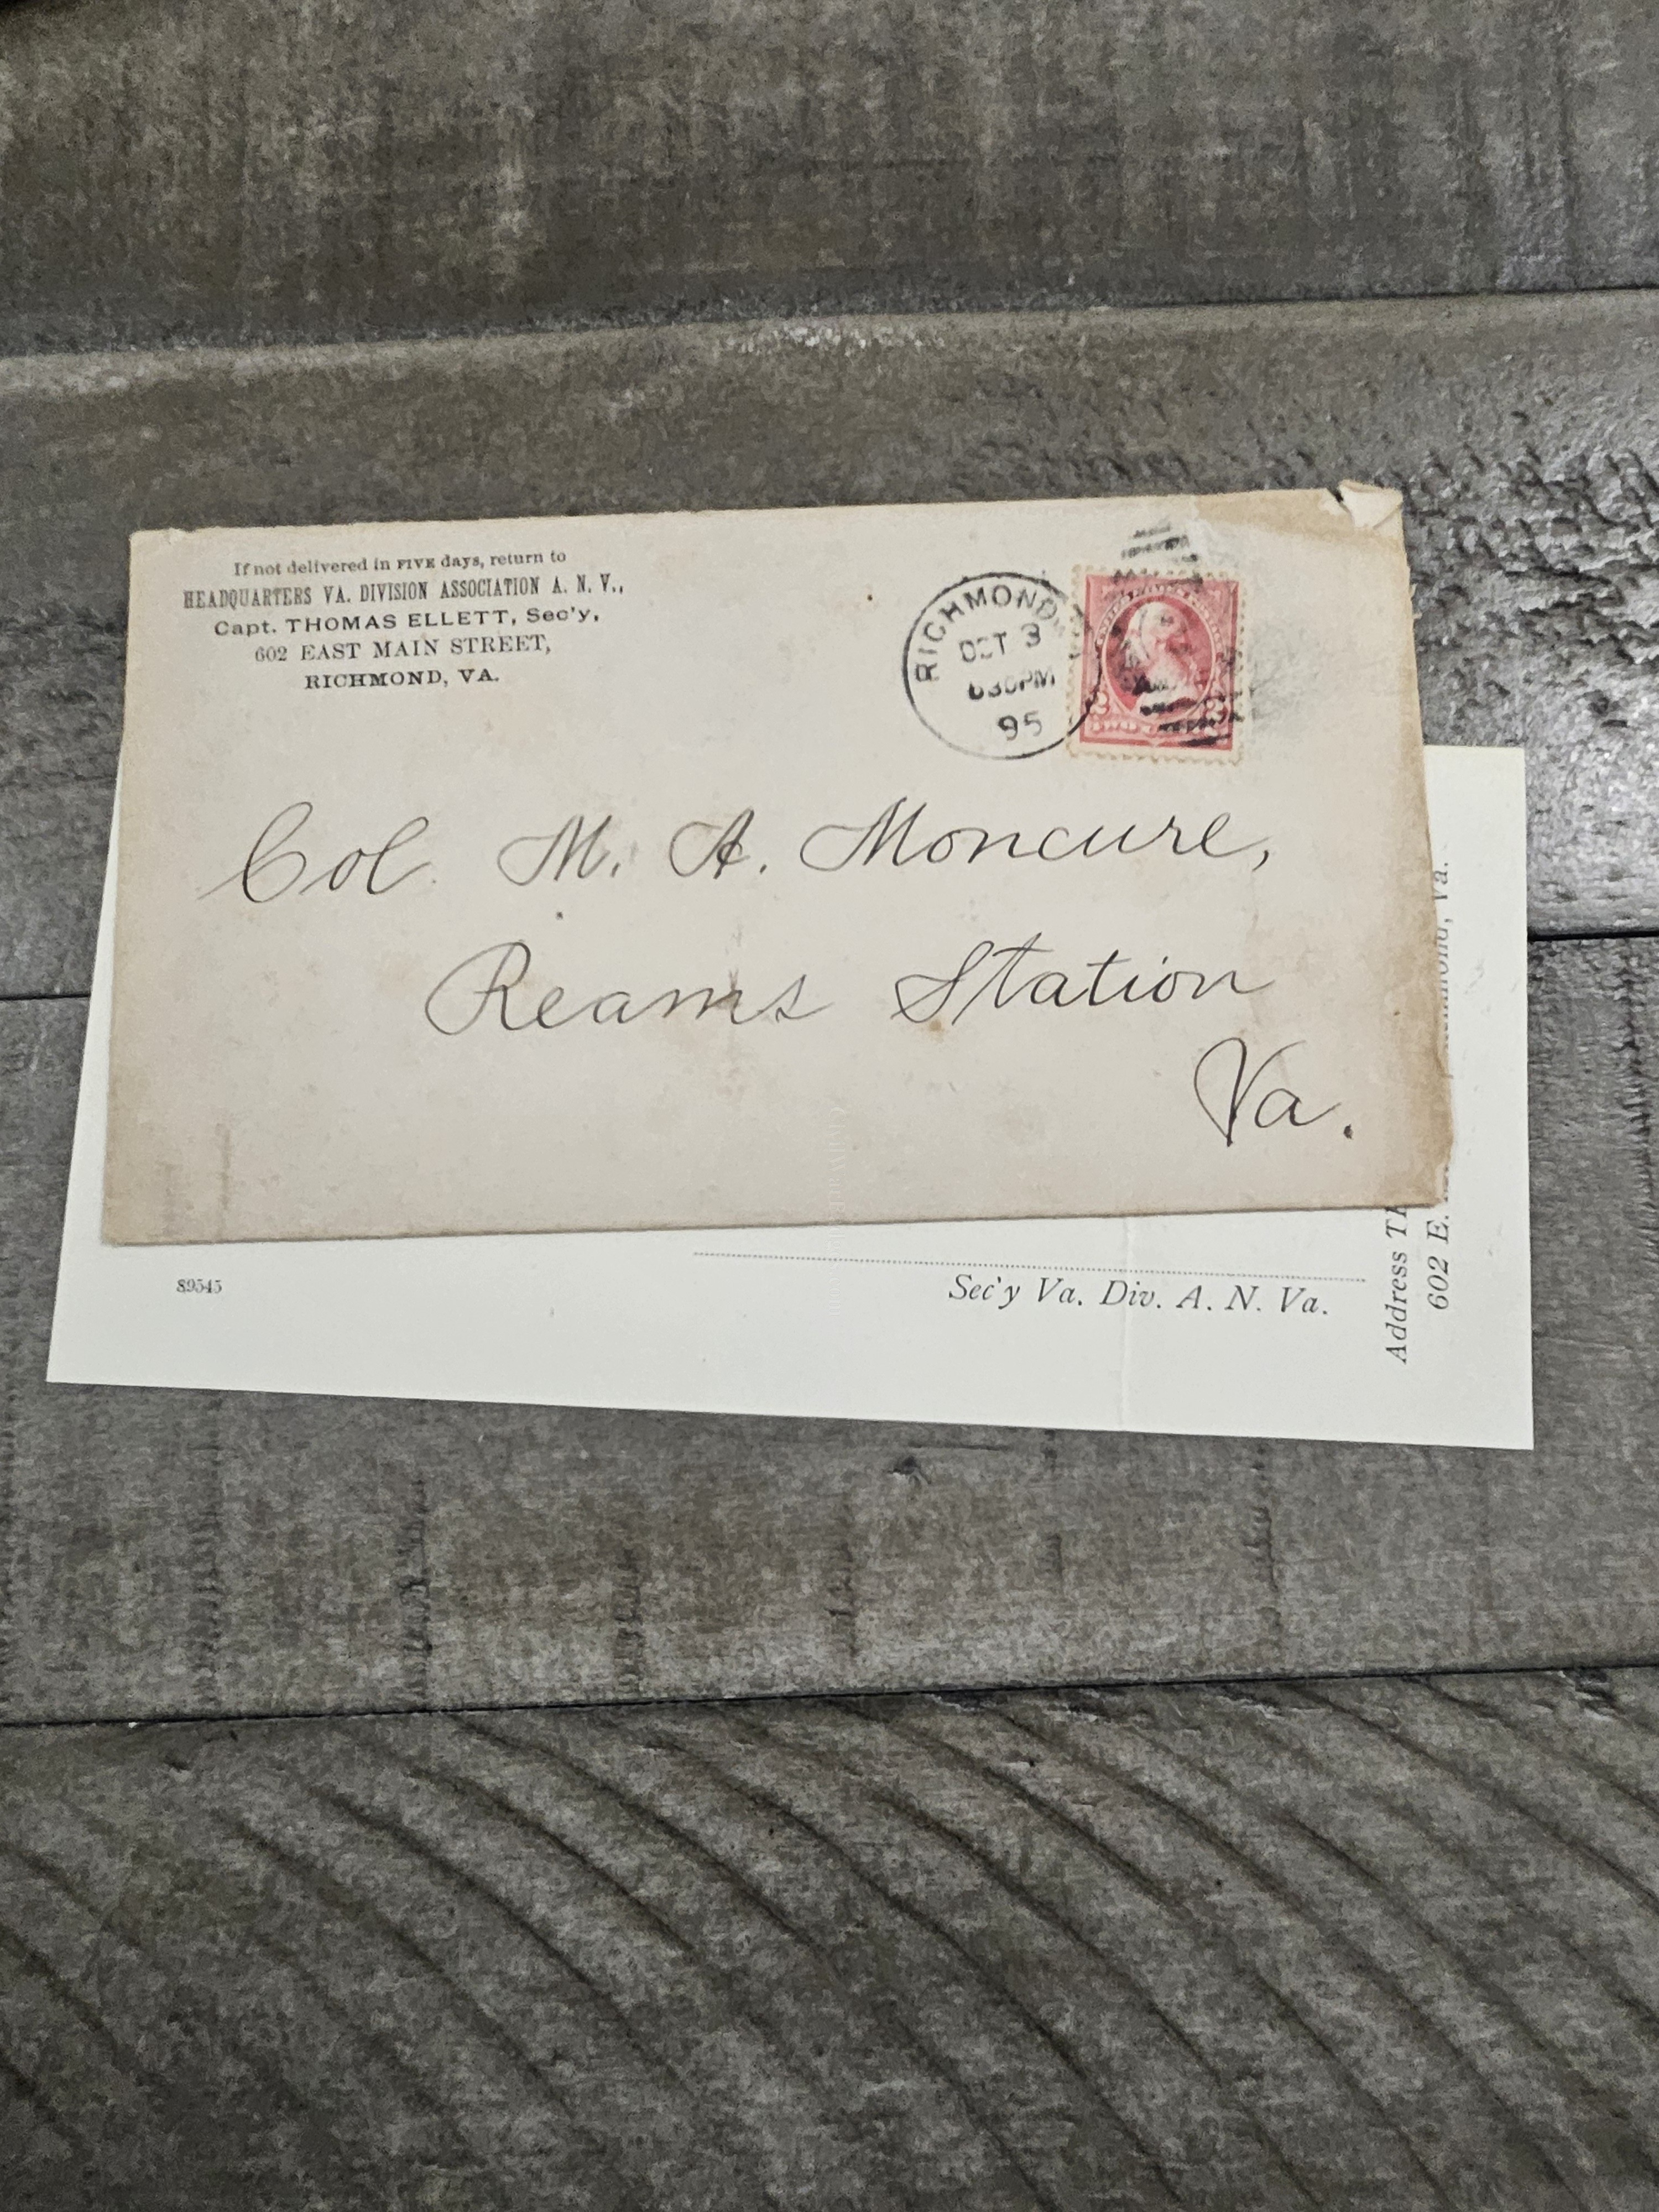 If not delivered in FIVE days, return to
HEADQUARTERS VA. DIVISION ASSOCIATION A. N. V.,
Capt. THOMAS ELLETT, Sec'y,
602 EAST MAIN STREET,
RICHMOND, VA.
RICHMOND
OCT 3
630PM
95
Col. M. A. Moncure,
Reams Station
Va.
89545
Sec'y Va. Div. A. N. Va.
Address
602 E. Va.